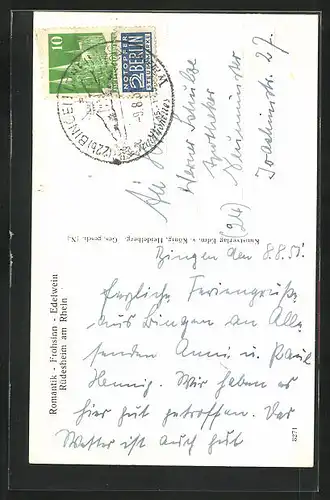 Romantik - Frohsinn - Edelwein
Rüdesheim am Rhein
Bingen den 8.8.51.
Herzliche Feriengrüße
aus Bingen an Alle
senden Anni u. Paul
Hennig. Wir haben es
hier gut getroffen. Das
Wetter ist auch gut
Kunstverlag Edm. v. König, Heidelberg Ges. gesch. (N.)
3271
10
NOTOPFER
2 BERLIN
STEUERMARKE
(22b) BINGEN
An
Werner Schulze
Apotheker
(24) Neumünster
Joachimstr. 27.